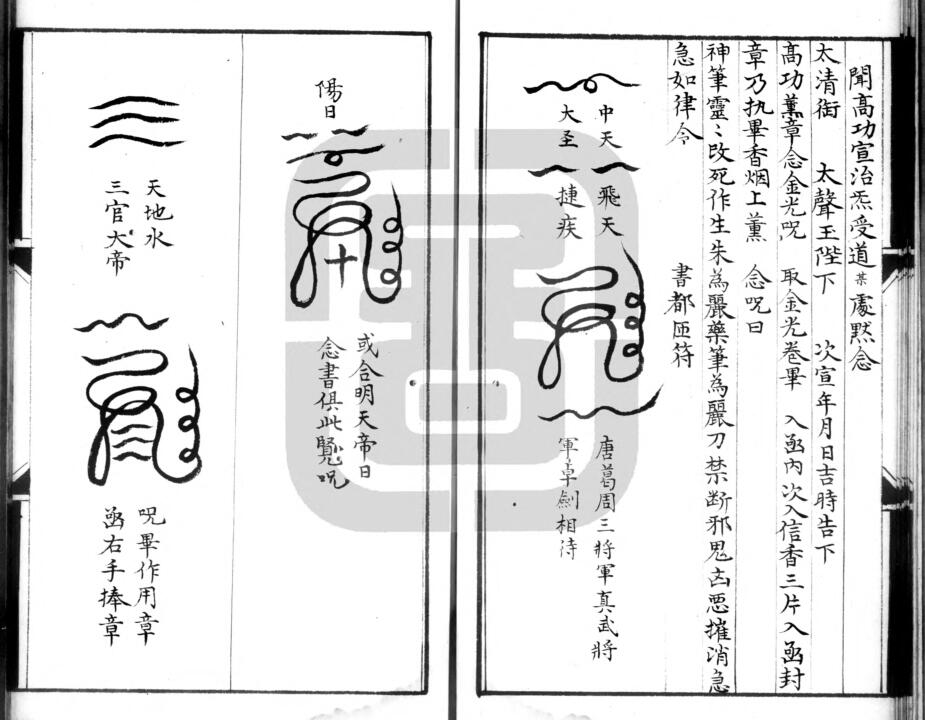 聞高功宣治炁受道某處默念
太清銜 太聲玉陛下 次宣年月日吉時告下
高功薰章念金光呪 取金光卷畢 入函內次入信香三片入函封
章乃执畢香烟上薰 念呪曰
神筆靈〻改死作生朱為麗藥筆為麗刀禁断邪鬼㐫惡摧消急
急如律令 書都匝符
中天
大圣
飛天
捷疾
唐葛周三將軍真武將
軍卓劍相待
陽日
十
或合明天帝日
念書俱此覽呪
天地水
三官大帝
呪畢作用章
函右手捧章